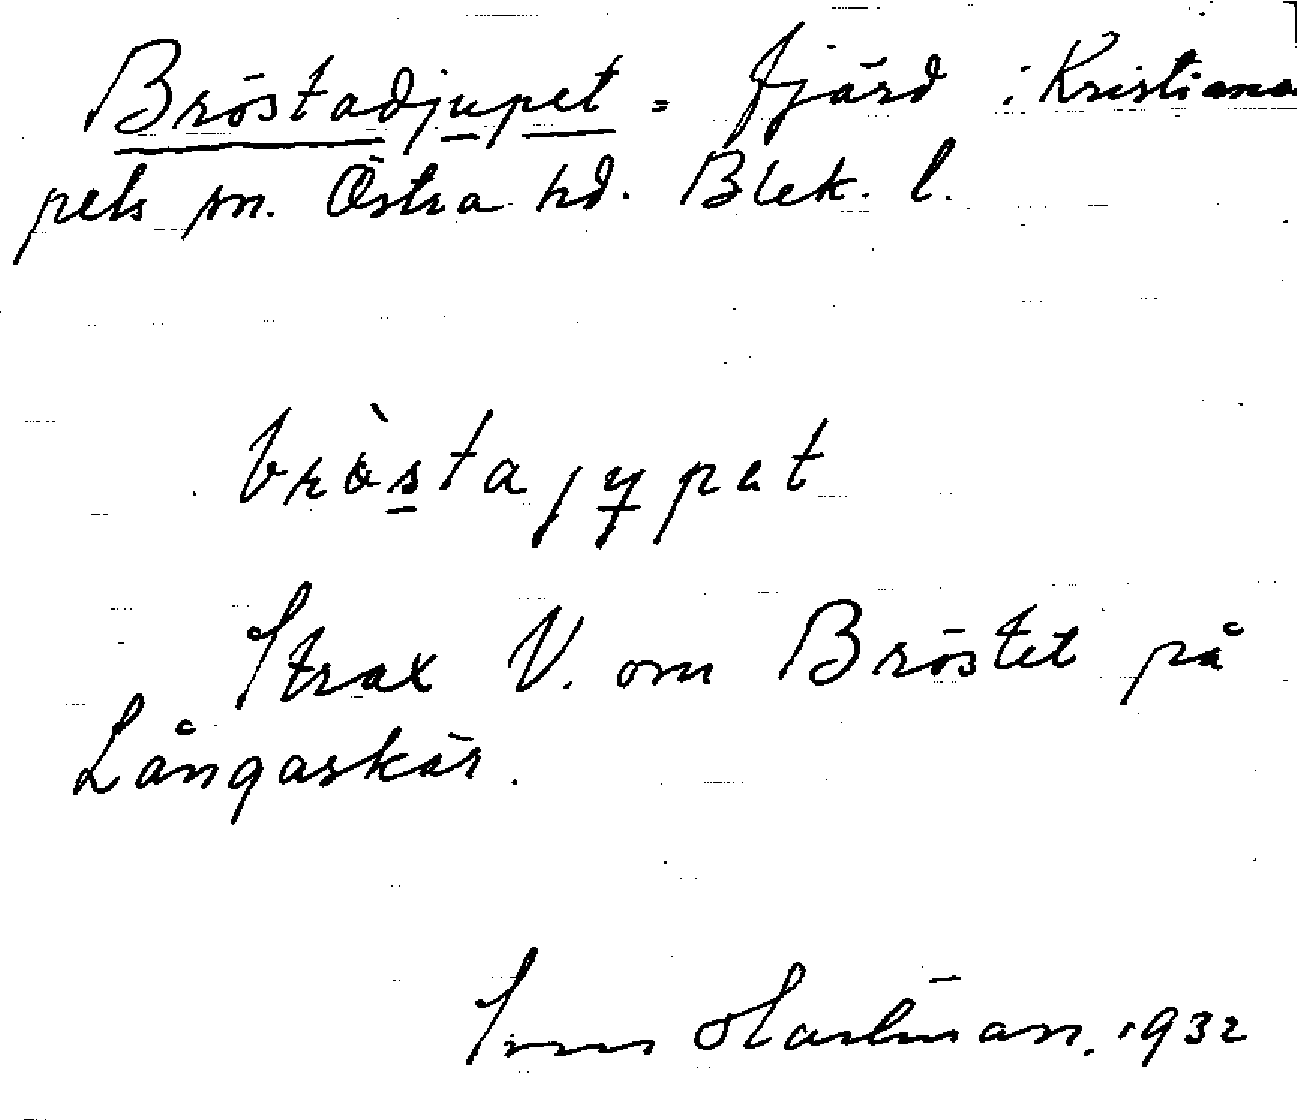 Bröstadjupet = fjärd i Kristiano
pels sn. Östra hd. Blek. l.
bròstajypet
Strax V. om Bröstet på
Långaskär.
1932